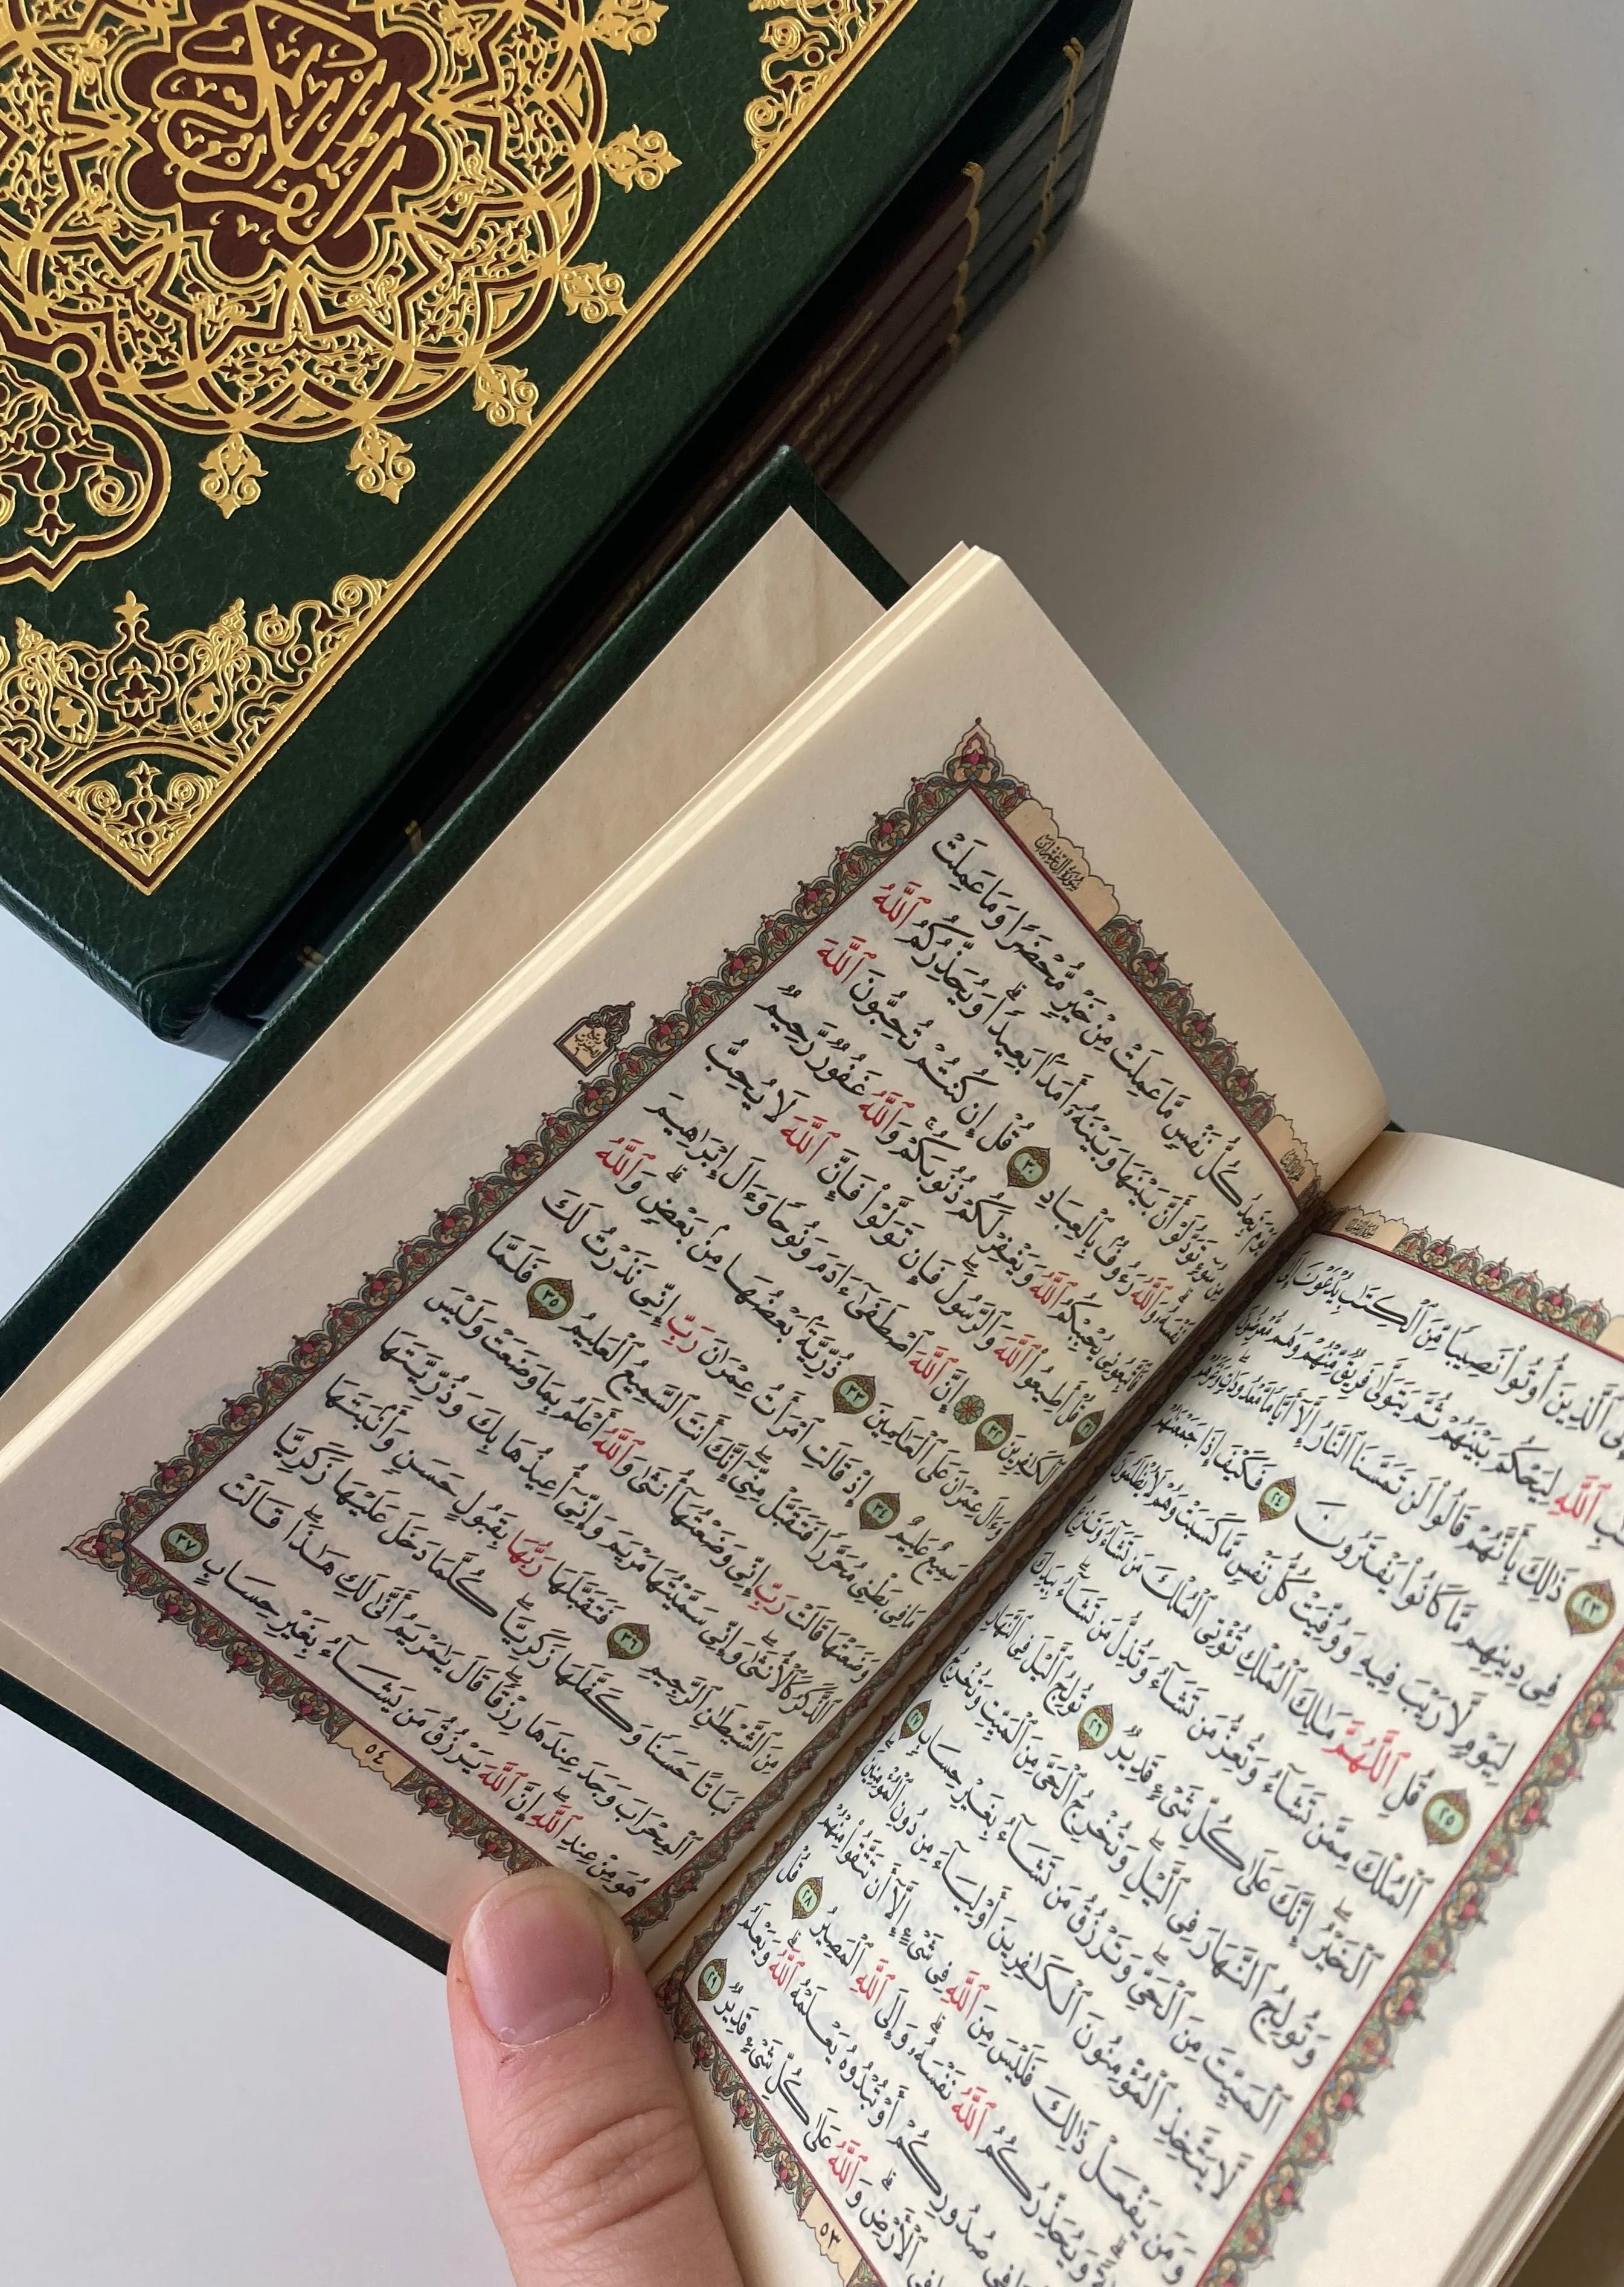 القرآن الكريم
ٱلَّذِينَ أُوتُوا۟ نَصِيبًا مِّنَ ٱلْكِتَٰبِ يُدْعَوْنَ إِلَىٰ
ٱللَّهِ لِيَحْكُمَ بَيْنَهُمْ ثُمَّ يَتَوَلَّىٰ فَرِيقٌ مِّنْهُمْ وَهُم مُّعْرِضُونَ
٢٣ ذَٰلِكَ بِأَنَّهُمْ قَالُوا۟ لَن تَمَسَّنَا ٱلنَّارُ إِلَّآ أَيَّامًا مَّعْدُودَٰتٍ وَغَرَّهُمْ
فِى دِينِهِم مَّا كَانُوا۟ يَفْتَرُونَ ٢٤ فَكَيْفَ إِذَا جَمَعْنَٰهُمْ
لِيَوْمٍ لَّا رَيْبَ فِيهِ وَوُفِّيَتْ كُلُّ نَفْسٍ مَّا كَسَبَتْ وَهُمْ لَا يُظْلَمُونَ
٢٥ قُلِ ٱللَّهُمَّ مَٰلِكَ ٱلْمُلْكِ تُؤْتِى ٱلْمُلْكَ مَن تَشَآءُ وَتَنزِعُ
ٱلْمُلْكَ مِمَّن تَشَآءُ وَتُعِزُّ مَن تَشَآءُ وَتُذِلُّ مَن تَشَآءُ ۖ بِيَدِكَ
ٱلْخَيْرُ ۖ إِنَّكَ عَلَىٰ كُلِّ شَىْءٍ قَدِيرٌ ٢٦ تُولِجُ ٱلَّيْلَ فِى ٱلنَّهَارِ
وَتُولِجُ ٱلنَّهَارَ فِى ٱلَّيْلِ ۖ وَتُخْرِجُ ٱلْحَىَّ مِنَ ٱلْمَيِّتِ وَتُخْرِجُ
ٱلْمَيِّتَ مِنَ ٱلْحَىِّ ۖ وَتَرْزُقُ مَن تَشَآءُ بِغَيْرِ حِسَابٍ ٢٧
لَّا يَتَّخِذِ ٱلْمُؤْمِنُونَ ٱلْكَٰفِرِينَ أَوْلِيَآءَ مِن دُونِ ٱلْمُؤْمِنِينَ ۖ
وَمَن يَفْعَلْ ذَٰلِكَ فَلَيْسَ مِنَ ٱللَّهِ فِى شَىْءٍ إِلَّآ أَن تَتَّقُوا۟ مِنْهُمْ
وَيُحَذِّرُكُمُ ٱللَّهُ نَفْسَهُۥ ۗ وَإِلَى ٱللَّهِ ٱلْمَصِيرُ ٢٨ قُلْ
فِى صُدُورِكُمْ أَوْ تُبْدُوهُ يَعْلَمْهُ ٱللَّهُ ۗ وَيَعْلَمُ
فِى ٱلْأَرْضِ ۗ وَٱللَّهُ عَلَىٰ كُلِّ شَىْءٍ قَدِيرٌ ٢٩
٥٣
سُورَةُ آلِ عِمْرَانَ
يَوْمَ تَجِدُ كُلُّ نَفْسٍ مَّا عَمِلَتْ مِنْ خَيْرٍ مُّحْضَرًا وَمَا عَمِلَتْ
مِن سُوٓءٍ تَوَدُّ لَوْ أَنَّ بَيْنَهَا وَبَيْنَهُۥٓ أَمَدًۢا بَعِيدًا ۗ وَيُحَذِّرُكُمُ ٱللَّهُ
نَفْسَهُۥ ۗ وَٱللَّهُ رَءُوفٌۢ بِٱلْعِبَادِ ٣٠ قُلْ إِن كُنتُمْ تُحِبُّونَ ٱللَّهَ
فَٱتَّبِعُونِى يُحْبِبْكُمُ ٱللَّهُ وَيَغْفِرْ لَكُمْ ذُنُوبَكُمْ ۗ وَٱللَّهُ غَفُورٌ رَّحِيمٌ
٣١ قُلْ أَطِيعُوا۟ ٱللَّهَ وَٱلرَّسُولَ ۖ فَإِن تَوَلَّوْا۟ فَإِنَّ ٱللَّهَ لَا يُحِبُّ
ٱلْكَٰفِرِينَ ٣٢ ۞ إِنَّ ٱللَّهَ ٱصْطَفَىٰٓ ءَادَمَ وَنُوحًا وَءَالَ إِبْرَٰهِيمَ
وَءَالَ عِمْرَٰنَ عَلَى ٱلْعَٰلَمِينَ ٣٣ ذُرِّيَّةًۢ بَعْضُهَا مِنۢ بَعْضٍ ۗ وَٱللَّهُ
سَمِيعٌ عَلِيمٌ ٣٤ إِذْ قَالَتِ ٱمْرَأَتُ عِمْرَٰنَ رَبِّ إِنِّى نَذَرْتُ لَكَ
مَا فِى بَطْنِى مُحَرَّرًا فَتَقَبَّلْ مِنِّىٓ ۖ إِنَّكَ أَنتَ ٱلسَّمِيعُ ٱلْعَلِيمُ ٣٥ فَلَمَّا
وَضَعَتْهَا قَالَتْ رَبِّ إِنِّى وَضَعْتُهَآ أُنثَىٰ وَٱللَّهُ أَعْلَمُ بِمَا وَضَعَتْ وَلَيْسَ
ٱلذَّكَرُ كَٱلْأُنثَىٰ ۖ وَإِنِّى سَمَّيْتُهَا مَرْيَمَ وَإِنِّىٓ أُعِيذُهَا بِكَ وَذُرِّيَّتَهَا
مِنَ ٱلشَّيْطَٰنِ ٱلرَّجِيمِ ٣٦ فَتَقَبَّلَهَا رَبُّهَا بِقَبُولٍ حَسَنٍ وَأَنۢبَتَهَا
نَبَاتًا حَسَنًا وَكَفَّلَهَا زَكَرِيَّا ۖ كُلَّمَا دَخَلَ عَلَيْهَا زَكَرِيَّا
ٱلْمِحْرَابَ وَجَدَ عِندَهَا رِزْقًا ۖ قَالَ يَٰمَرْيَمُ أَنَّىٰ لَكِ هَٰذَا ۖ قَالَتْ
هُوَ مِنْ عِندِ ٱللَّهِ ۖ إِنَّ ٱللَّهَ يَرْزُقُ مَن يَشَآءُ بِغَيْرِ حِسَابٍ ٣٧
٥٤